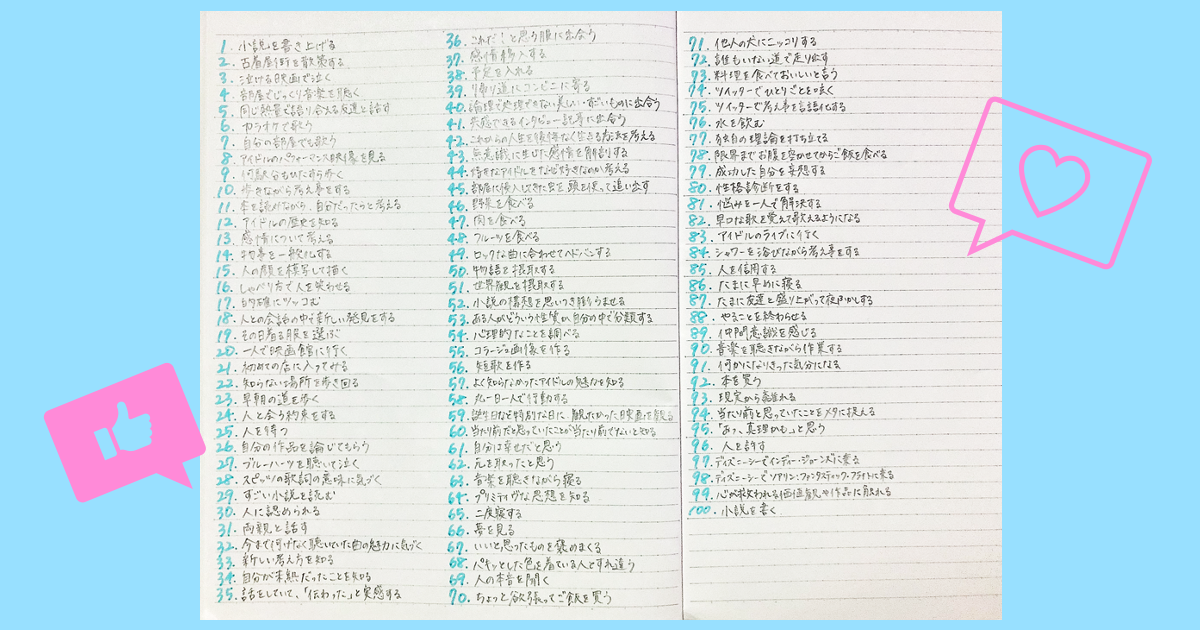 1. 小説を書き上げる
2. 古着屋街を散策する
3. 泣ける映画で泣く
4. 部屋でじっくり音楽を聴く
5. 同じ熱量で語り合える友達と話す
6. カラオケで歌う
7. 自分の部屋でも歌う
8. アイドルのパフォーマンス映像を見る
9. 何駅分もひたすら歩く
10. 歩きながら考え事をする
11. 本を読みながら、自分だったらと考える
12. アイドルの歴史を知る
13. 感情について考える
14. 物事を一般化する
15. 人の顔を模写して描く
16. しゃべり方で人を笑わせる
17. 的確にツッコむ
18. 人との会話の中で新しい発見をする
19. その日着る服を選ぶ
20. 一人で映画館に行く
21. 初めての店に入ってみる
22. 知らない場所を歩き回る
23. 早朝の道を歩く
24. 人と会う約束をする
25. 人を待つ
26. 自分の作品を論じてもらう
27. ブルーハーツを聴いて泣く
28. スピッツの歌詞の意味に気づく
29. すごい小説を読む
30. 人に認められる
31. 両親と話す
32. 今まで何げなく聴いていた曲の魅力に気づく
33. 新しい考え方を知る
34. 自分が未熟だったことを知る
35. 話をしていて、「伝わった」と実感する
36. これだ!と思う服に出会う
37. 感情移入する
38. 予定を入れる
39. 帰り道にコンビニに寄る
40. 論理で処理できない美しい・すごいものに出会う
41. 共感できるインタビュー記事に出会う
42. これからの人生を後悔なく生きる方法を考える
43. 無意識に生じた感情を解剖する
44. 好きなアイドルをなぜ好きなのか考える
45. 部屋に侵入してきた虫を頭を使って追い出す
46. 野菜を食べる
47. 肉を食べる
48. フルーツを食べる
49. ロックな曲に合わせてヘドバンする
50. 物語を摂取する
51. 世界観を摂取する
52. 小説の構想を思いつき勝ちうませる
53. ある人がどういう性質か自分の中で分類する
54. 心理的なことを調べる
55. コラージュ画像を作る
56. 短歌を作る
57. よく知らなかったアイドルの魅力を知る
58. 丸一日一人で行動する
59. 誕生日など特別な日に、観たかった映画を観る
60. 当たり前だと思っていたことが当たり前でないと知る
61. 自分は幸せだと思う
62. 元を取ったと思う
63. 音楽を聴きながら寝る
64. プリミティヴな思想を知る
65. 二度寝する
66. 夢を見る
67. いいと思ったものを褒めまくる
68. パキッとした色を着ている人とすれ違う
69. 人の本音を聞く
70. ちょっと欲張ってご飯を買う
71. 他人の犬にニッコリする
72. 誰もいない道で走り出す
73. 料理を食べておいしいと言う
74. ツイッターでひとりごとを呟く
75. ツイッターで考え事を言語化する
76. 水を飲む
77. 独自の理論を打ち立てる
78. 限界までお腹を空かせてからご飯を食べる
79. 成功した自分を妄想する
80. 性格診断をする
81. 悩みを一人で解決する
82. 早口な歌を覚えて歌えるようになる
83. アイドルのライブに行く
84. シャワーを浴びながら考え事をする
85. 人を信用する
86. たまに早めに寝る
87. たまに友達と盛り上がって夜ふかしする
88. やることを終わらせる
89. 仲間意識を感じる
90. 音楽を聴きながら作業する
91. 何かになりきった気分になる
92. 本を買う
93. 現実から離れる
94. 当たり前と思っていたことをメタに捉える
95. 「あっ、真理かも」と思う
96. 人を許す
97. ディズニーシーでインディ・ジョーンズに乗る
98. ディズニーシーでソアリン:ファンタスティック・フライトに乗る
99. 心が救われる価値観や作品に触れる
100. 小説を書く